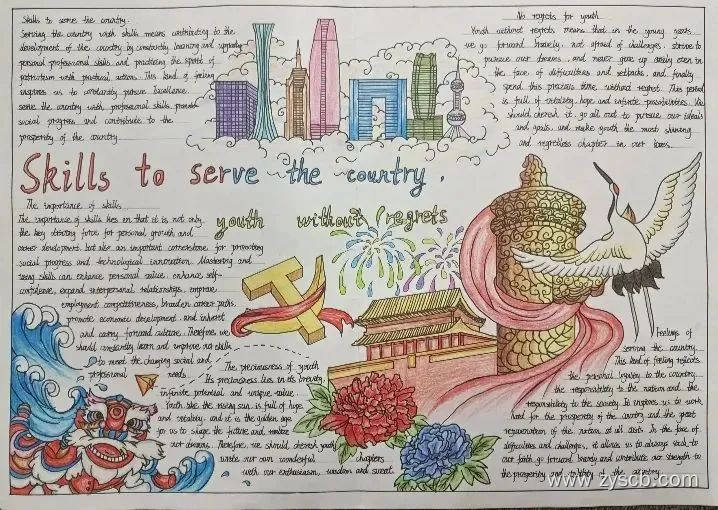 Skills to serve the country.
Serving the country with skills means contributing to the
development of the country by constantly learning and
personal professional skills and practicing the spirit of
patriotism with practical actions. This kind of feeling
inspires us to constantly pursue excellence,
serve the country with professional skills, promote
social progress and contribute to the
prosperity of the country
No regrets for youth
Youth without regrets means that in the young years
we go forward bravely, not afraid of challenges, strive to
pursue our dreams, and never give up easily even in
the face of difficulties and setbacks, and finally
spend this precious time without regret. This period
is full of vitality, hope and infinite possibilities. We
should cherish it, go all out to pursue our ideals
and goals, and make youth the most shining
and regretless chapter in our lives.
Skills to serve the country,
youth without regrets
The importance of skills
The importance of skills lies in that it is not only
the key driving force for personal growth and
career development, but also an important cornerstone for promoting
social progress and technological innovation. Mastering and
using skills can enhance personal value, enhance self-
confidence, expand interpersonal relationships, improve
employment competitiveness, broaden career paths,
promote economic development, and inherit
and carry forward culture. Therefore, we
should constantly learn and improve our skills
to meet the changing social and
professional needs.
The preciousness of youth
Its preciousness lies in its brevity,
infinite potential and unique value.
Youth, like the rising sun, is full of hope
and vitality, and it is the golden age
for us to shape the future and realize
our dreams. Therefore, we should cherish youth,
write our own wonderful chapters
with our enthusiasm, wisdom and sweat.
Feelings of
serving the country
This kind of feeling reflects
the personal loyalty to the country,
the responsibility to the nation and the
responsibility to the society. It inspires us to work
hard for the prosperity of the country and the great
rejuvenation of the nation at all costs. In the face of
difficulties and challenges, it allows us to always stick to
our faith, go forward bravely and contribute our strength to
the prosperity and of the country.
www.zyscb.com